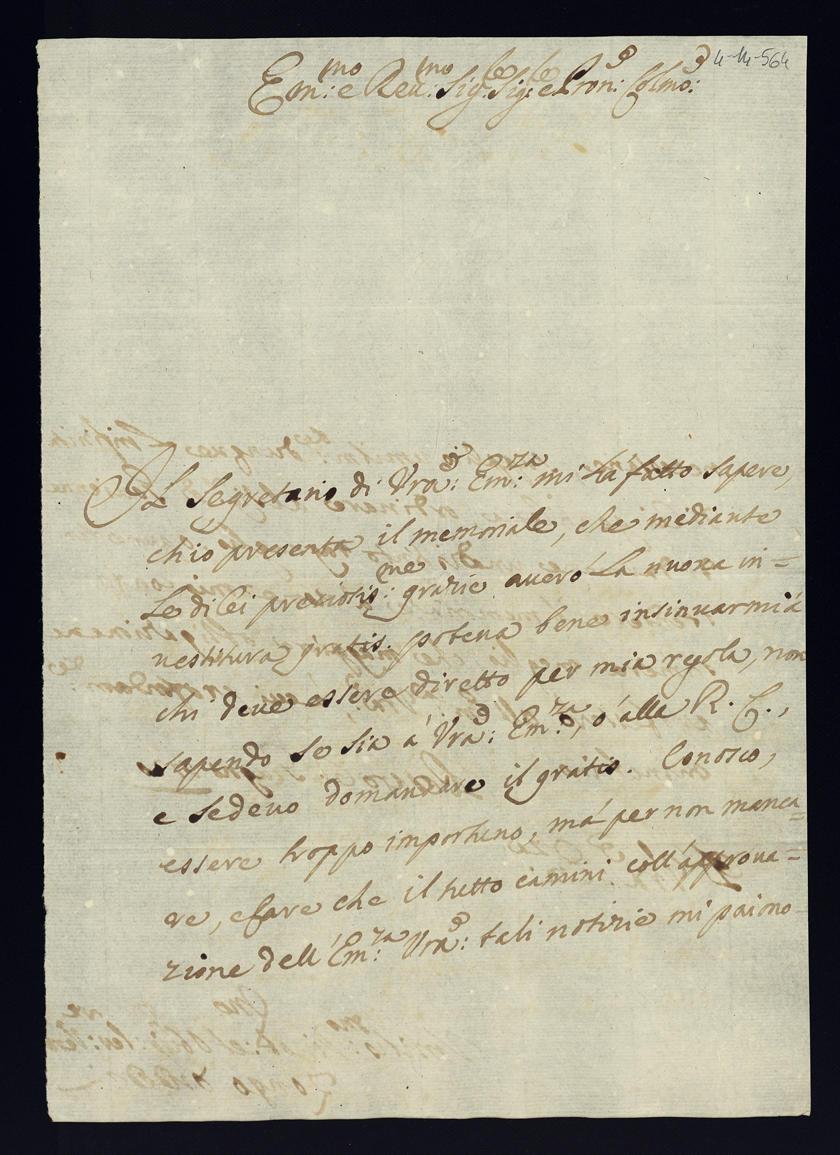 4-14-564
Em:mo e Reu:mo Sig:re Sig:re e Pron: Colmo:
Il Segretario di Vra: Em:za mi ha fatto sapere,
ch'io presenta il memoriale, che mediante
Le di lei preziosis:me grazie auerò La nuoua in=
uestitura gratis. poteua bene insinuarmi à
chi deue essere diretto per mia regola, non
sapendo se sia à Vra: Em:za, ò alla R. C.,
e se deuo domandare il gratis. Conosco,
essere troppo importuno, mà per non manca=
re, e fare che il tutto camini coll'approua=
zione dell'Em:za Vra: tali notizie mi paiono